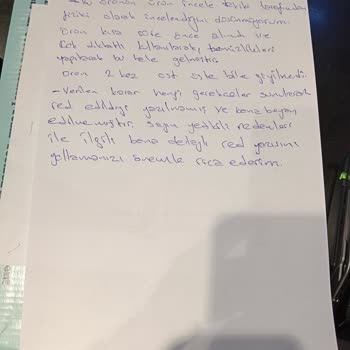 ürünün ürün incele
fiziki olarak incelendiğini düşünmüyorum.
Ürün kısa süre önce alındı ve
çok dikkatli kullanılarak temizlikleri
yapılarak bu hale gelmiştir.
Ürün 2 kez üst üste bile giyilmedi.
- Verilen karar hangi gerekçeler sunularak
red edildiği yazılmamış ve bana beyan
edilmemiştir. Sayın yetkili nedenleri
ile ilgili bana detaylı red yazısını
yollamanızı önemle rica ederim.